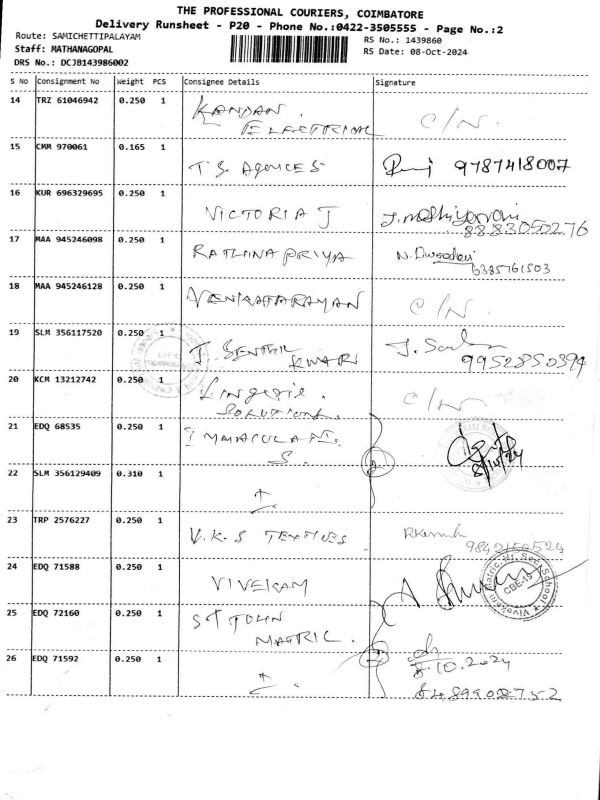 THE PROFESSIONAL COURIERS, COIMBATORE
Delivery Runsheet - P20 - Phone No.:0422-3505555 - Page No.:2
Route: SAMICHETTIPALAYAM
RS No.: 1439860
Staff: MATHANAGOPAL
RS Date: 08-Oct-2024
DRS No.: DCJB143986002
S No Consignment No Weight PCS Consignee Details Signature
14 TRZ 61046942 0.250 1 KANDAN
ELECTRICAL C/N.
15 CMM 970061 0.165 1 T.S. AGENCES 9787418007
16 KUR 696329695 0.250 1 VICTORIA J
8883050276
17 MAA 945246098 0.250 1 RATHNA PRIYA
6385761503
18 MAA 945246128 0.250 1 VENKATARAYAN C/N.
19 SLM 356117520 0.250 1 T. SENTHIL
KUMAR 9952850394
20 KCM 13212742 0.250 1 C/N.
SOLUTIONS.
21 EDQ 68535 0.250 1 IMMACULATE.
S. 8/10/24
22 SLM 356129409 0.310 1
23 TRP 2576227 0.250 1 V.K.S TEXTILES
9842150524
24 EDQ 71588 0.250 1 VIVEKAM
CBE-15
25 EDQ 72160 0.250 1 ST JOHN
MATRIC.
8.10.2024
26 EDQ 71592 0.250 1